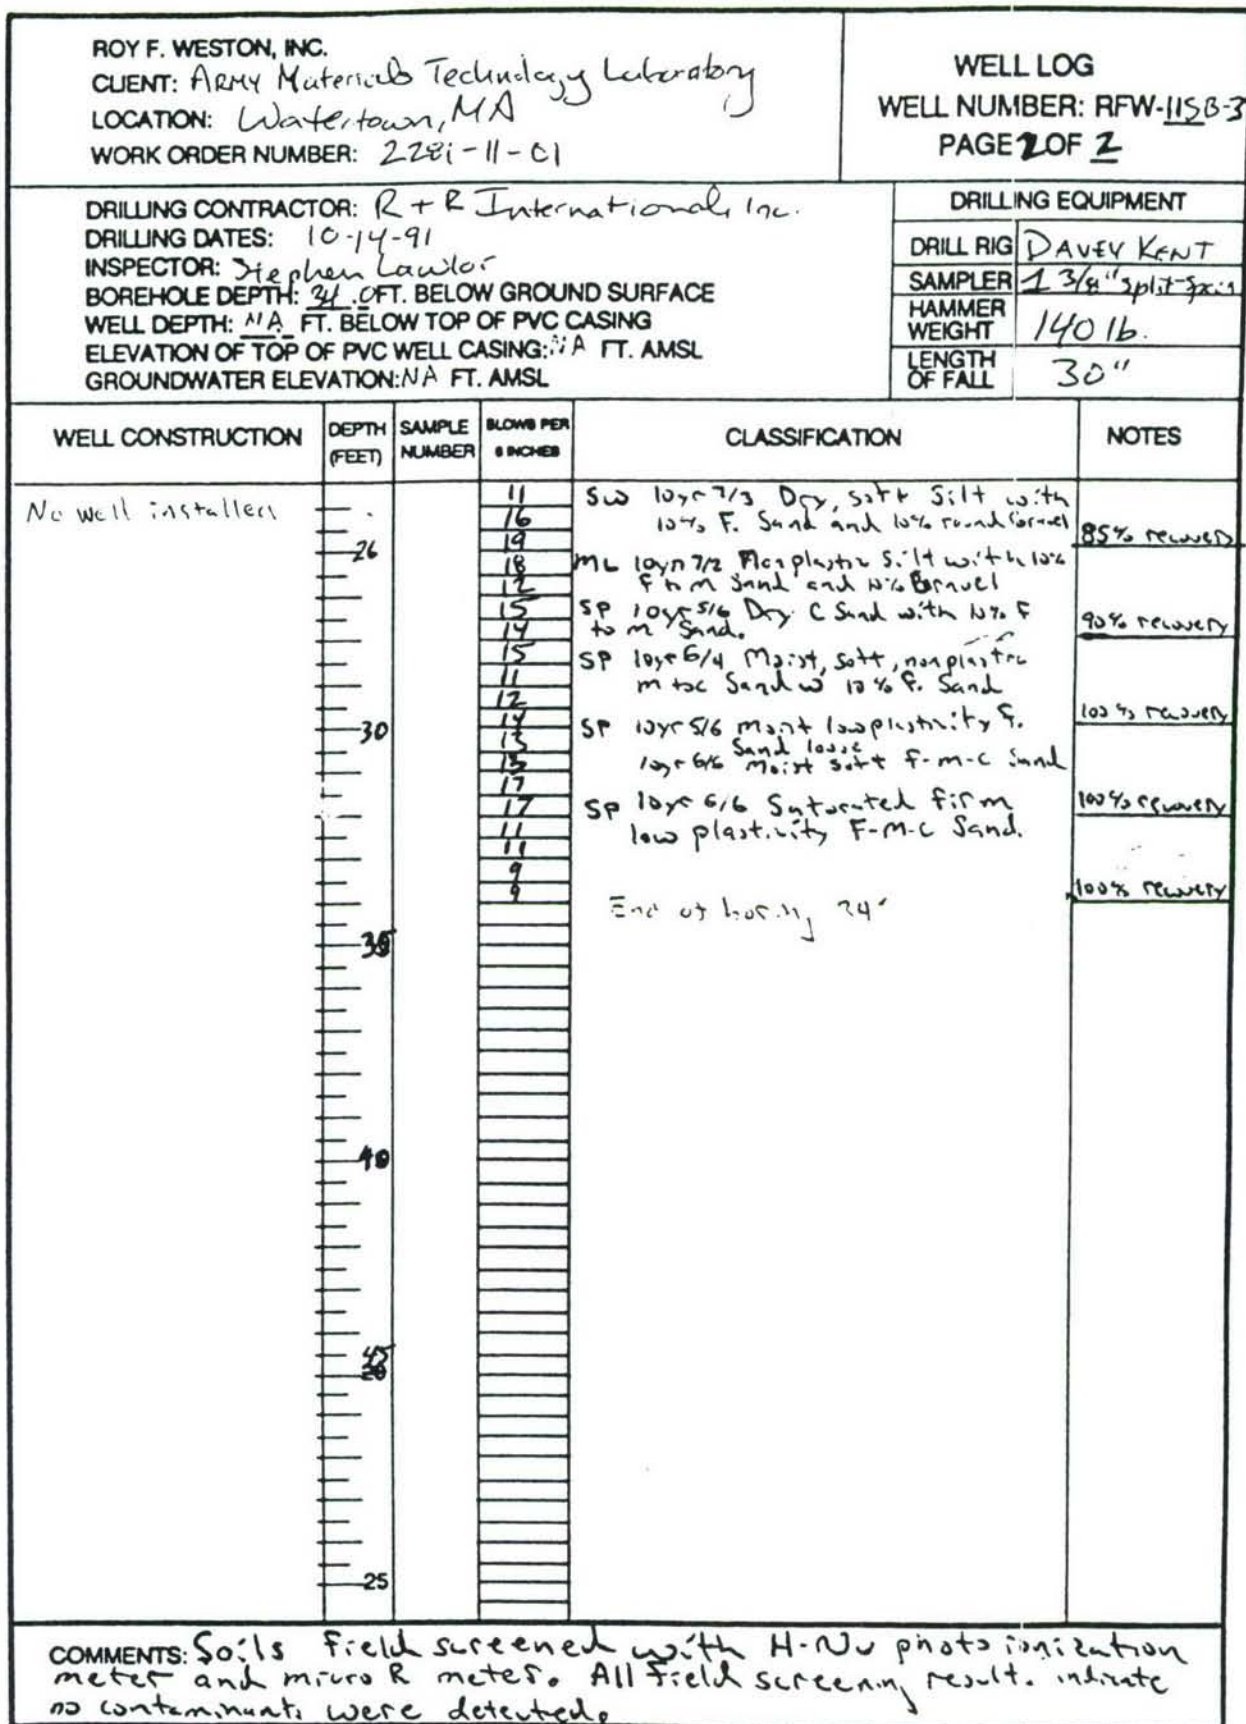 ROY F. WESTON, INC.
CLIENT: ARMY Materials Technology Laboratory
LOCATION: Watertown, MA
WORK ORDER NUMBER: 2281-11-01
WELL LOG
WELL NUMBER: RFW-11SB-3
PAGE 2 OF 2
DRILLING CONTRACTOR: R + R International, Inc.
DRILLING DATES: 10-14-91
INSPECTOR: Stephen Lawlor
BOREHOLE DEPTH: 34.0 FT. BELOW GROUND SURFACE
WELL DEPTH: NA FT. BELOW TOP OF PVC CASING
ELEVATION OF TOP OF PVC WELL CASING: NA FT. AMSL
GROUNDWATER ELEVATION: NA FT. AMSL
DRILLING EQUIPMENT
DRILL RIG DAVEY KENT
SAMPLER 1 3/8" split-spoon
HAMMER WEIGHT 140 lb.
LENGTH OF FALL 30"
WELL CONSTRUCTION
DEPTH (FEET)
SAMPLE NUMBER
BLOWS PER 6 INCHES
CLASSIFICATION
NOTES
No well installed
11
SW 10yr 7/3 Dry, soft Silt with
16
10% F. Sand and 10% round Gravel
85% recovery
19
26
18
ML 10yr 7/2 Nonplastic Silt with 10%
12
F to M Sand and 10% Gravel
15
SP 10yr 5/6 Dry C Sand with 10% F
14
to m Sand.
90% recovery
15
SP 10yr 6/4 Moist, soft, nonplastic
11
m to c Sand w 10% F. Sand
12
100% recovery
14
30
SP 10yr 5/6 Moist low plasticity F.
13
Sand loose
13
10yr 6/6 Moist soft F-m-c Sand
17
17
SP 10yr 6/6 Saturated firm
100% recovery
11
low plasticity F-M-C Sand.
11
9
9
100% recovery
End of boring 34'
35
40
45
25
COMMENTS: Soils field screened with H-Nu photo ionization
meter and micro R meter. All field screening result. indicate
no contaminants were detected.